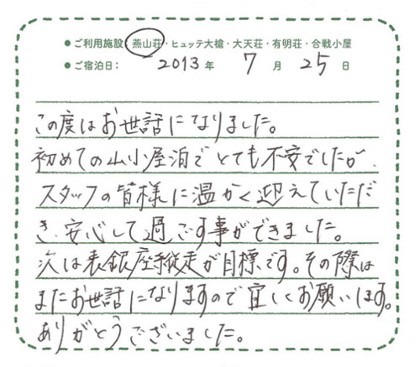 ●ご利用施設:燕山荘・ヒュッテ大槍・大天荘・有明荘・合戦小屋
●ご宿泊日: 2013年 7月 25日
この度はお世話になりました。
初めての山小屋泊でとても不安でしたが、
スタッフの皆様に温かく迎えていただ
き、安心して過ごす事ができました。
次は表銀座縦走が目標です。その際は
またお世話になりますので宜しくお願いします。
ありがとうございました。